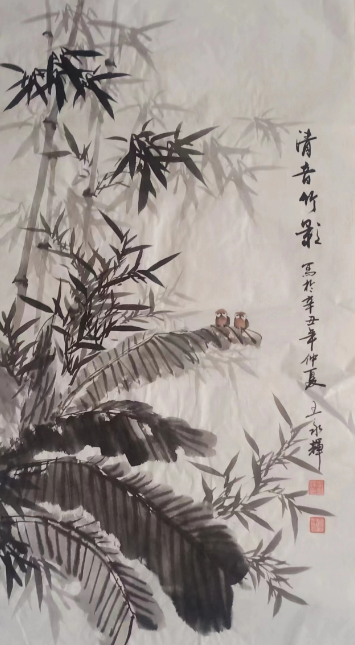 清音竹影
写於辛丑年仲夏 王永輝